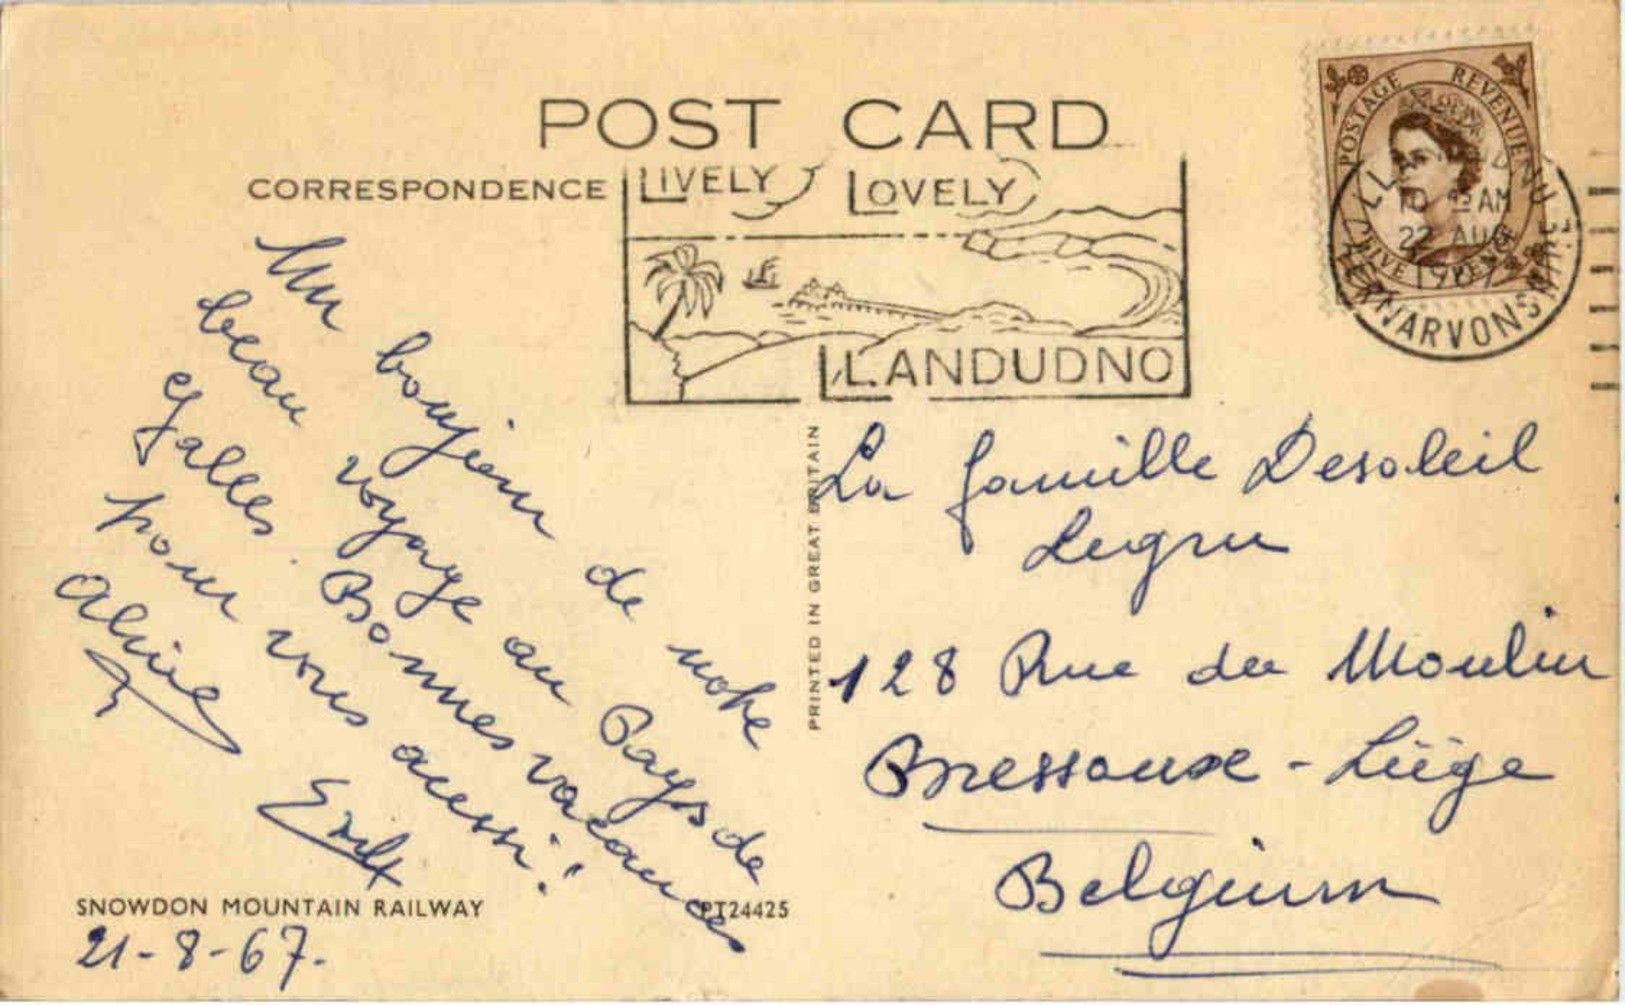 POST CARD
CORRESPONDENCE
LIVELY LOVELY
LLANDUDNO
POSTAGE REVENUE
10 45 AM
22 AUG
1967
Un bonjour de notre
beau voyage au Pays de
Galles. Bonnes vacances
pour vous aussi!
Aline
PRINTED IN GREAT BRITAIN
La famille Desoleil
Legru
128 Rue du Moulin
Bressoux - Liège
Belgium
SNOWDON MOUNTAIN RAILWAY
PT24425
21-8-67.